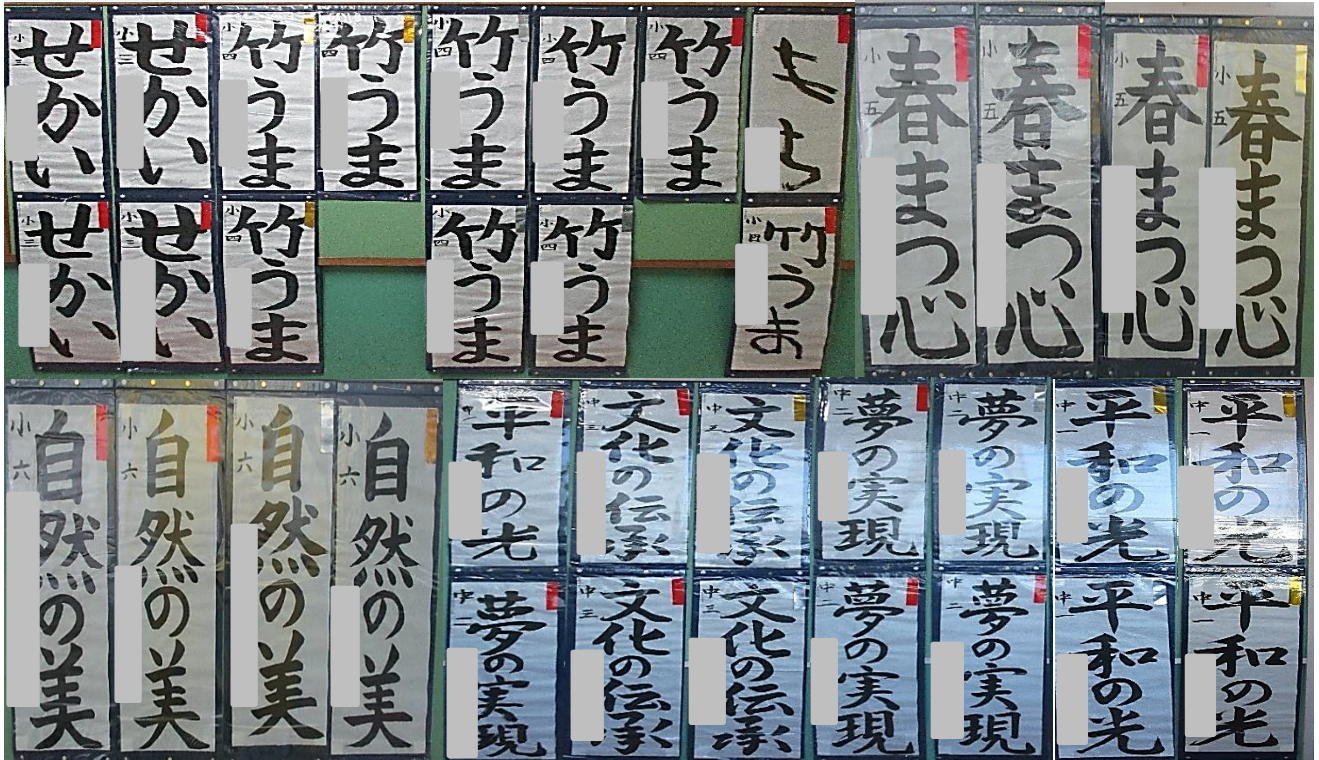 小三
せかい
小三
せかい
小四
竹うま
小四
竹うま
小四
竹うま
小四
竹うま
小四
竹うま
もち
小三
せかい
小三
せかい
小四
竹うま
小四
竹うま
小四
竹うま
小四
竹うま
小五
春まつ心
小五
春まつ心
小五
春まつ心
小五
春まつ心
小六
自然の美
小六
自然の美
小六
自然の美
小六
自然の美
平和の光
中三
文化の伝承
中三
文化の伝承
中二
夢の実現
中二
夢の実現
中一
平和の光
中一
平和の光
中二
夢の実現
中三
文化の伝承
中三
文化の伝承
中二
夢の実現
中二
夢の実現
中一
平和の光
中一
平和の光